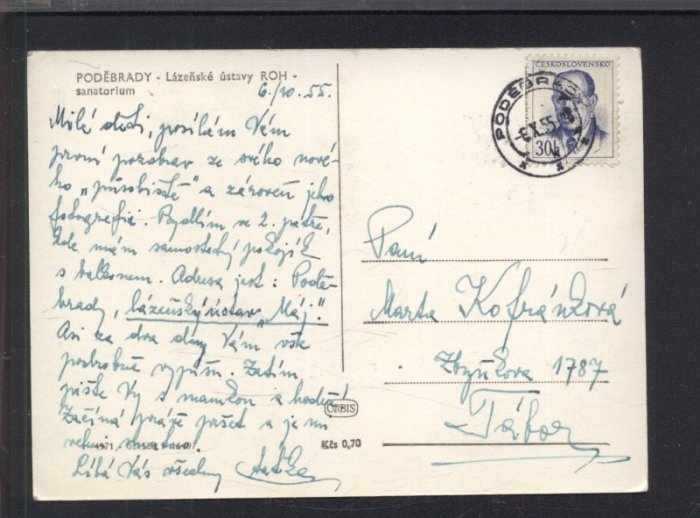 PODĚBRADY - Lázeňské ústavy ROH -
sanatorium
6./10. 55.
Milé děti, posílám Vám
první pozdrav ze svého nové-
ho „působiště" a zároveň jeho
fotografii. Bydlím ve 2. patře,
kde mám samostatný pokojík
s balkonem. Adresa jest: Podě-
brady, lázeňský ústav „Máj".
Asi za dva dny Vám vše
podrobně vypíšu. Zatím
pište Vy s mamkou a hodně!
Začíná právě pršet a je mi
velmi
Líbá Vás všechny
ORBIS
Kčs 0,70
ČESKOSLOVENSKO
30h
PODĚBRADY
-6.X.55-
Paní
Marta Kofránková
Zbyňkova 1787
Tábor